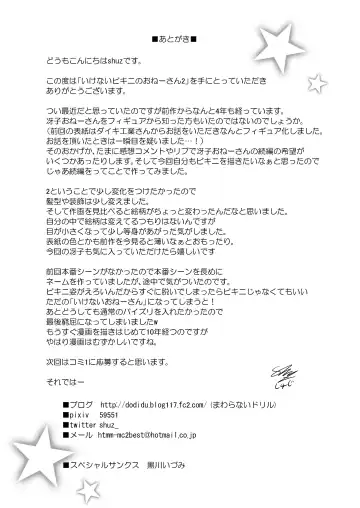 ■あとがき■
どうもこんにちはshuzです。
この度は「いけないビキニのおねーさん2」を手にとっていただき
ありがとうございます。
つい最近だと思っていたのですが前作からなんと4年も経っています。
冴子おねーさんをフィギュアから知った方もいたのではないのでしょうか。
(前回の表紙はダイキ工業さんからお話をいただきなんとフィギュア化しました。
お話を頂いたときは一瞬目を疑いました…！)
そのおかげか、たまに感想コメントやリプで冴子おねーさんの続編の希望が
いくつかあったりします。そして今回自分もビキニを描きたいなぁと思ったので
じゃあ続編をってことで作ってみました。
2ということで少し変化をつけたかったので
髪型や装飾は少し変えました。
そして作画を見比べると絵柄がちょっと変わったんだなと思いました。
自分の中で絵柄は変えてるつもりはないんですが
目が小さくなって少し等身があがった気がしました。
表紙の色とかも前作を今見ると薄いなぁとおもったり。
今回の冴子も気に入っていただけたら嬉しいです
前回本番シーンがなかったので本番シーンを長めに
ネームを作っていましたが、途中で気がついたのです。
ビキニ姿がえろいんだからすぐに脱いでしまったらビキニじゃなくてもいい
ただの「いけないおねーさん」になってしまうと！
あとどうしても通常のパイズリを入れたかったので
最後窮屈になってしまいましたw
もうすぐ漫画を描きはじめて10年経つのですが
やはり漫画はむずかしいですね。
次回はコミ1に応募すると思います。
それではー
■ブログ　http://dodidu.blog117.fc2.com/ (まわらないドリル)
■pixiv　59551
■twitter shuz_
■メール　htmm-mc2best@hotmail.co.jp
■スペシャルサンクス　黒川いづみ